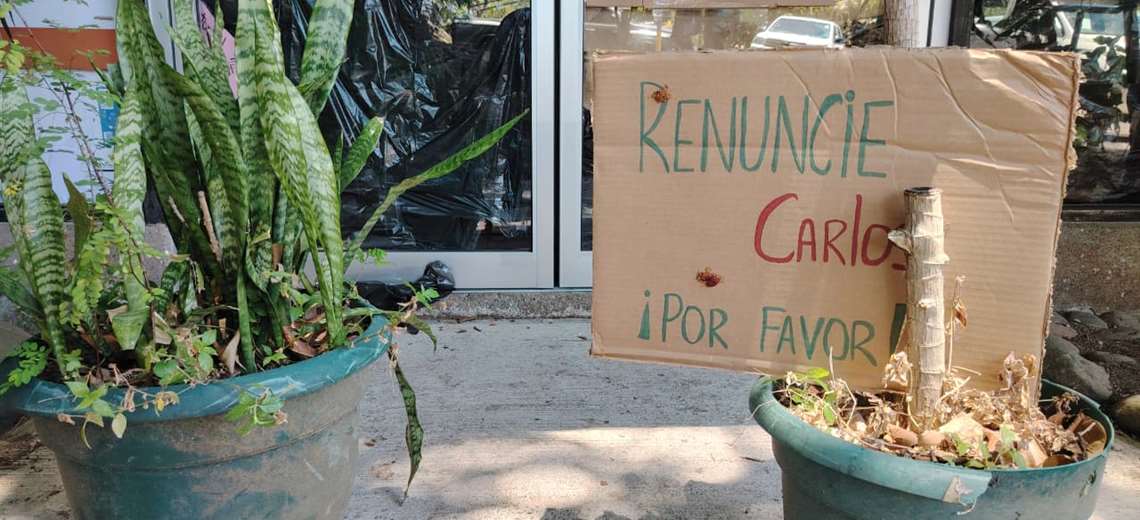 RENUNCiE
CARloS
¡POR FAVOR!